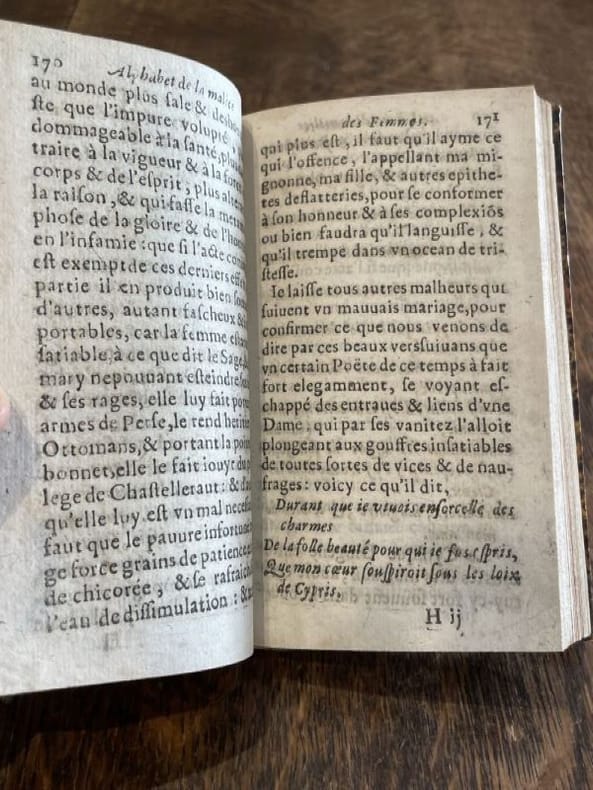 170 Alphabet de la malice
au monde plus sale & desho
ste, que l'impure volupté, pl
dommageable à la santé, plus
traire à la vigueur & à la force
corps & de l'esprit, plus alter
la raison, & qui fasse la metm
phose de la gloire & de l'hon
en l'infamie: que si l'acte con
est exempt de ces derniers effe
partie il en produit bien sou
d'autres, autant fascheux &
portables, car la femme estant
satiable, à ce que dit le Sage,
mary ne pouuant esteindre ses
& ses rages, elle luy fait por
armes de Perse, le rend heritie
Ottomans, & portant la poin
bonnet, elle le fait iouyr du p
lege de Chastelleraut: & d'a
qu'elle luy est vn mal necess
faut que le pauure infortuné
ge force grains de patience,
de chicorée, & se rafraich
l'eau de dissimulation: &
des Femmes. 171
qui plus est, il faut qu'il ayme ce
qui l'offence, l'appellant ma mi-
gnonne, ma fille, & autres epithe-
tes de flatteries, pour se conformer
à son honneur & à ses complexiõs
ou bien faudra qu'il languisse, &
qu'il trempe dans vn ocean de tri-
stesse.
Ie laisse tous autres malheurs qui
suiuent vn mauuais mariage, pour
confirmer ce que nous venons de
dire par ces beaux vers suiuans que
vn certain Poëte de ce temps à fait
fort elegamment, se voyant es-
chappé des entraues & liens d'vne
Dame: qui par ses vanitez l'alloit
plongeant aux gouffres insatiables
de toutes sortes de vices & de nau-
frages: voicy ce qu'il dit,
Durant que ie viuois ensorcellé des
charmes
De la folle beauté pour qui ie fus espris,
Que mon cœur souspiroit sous les loix
de Cypris,
H ij